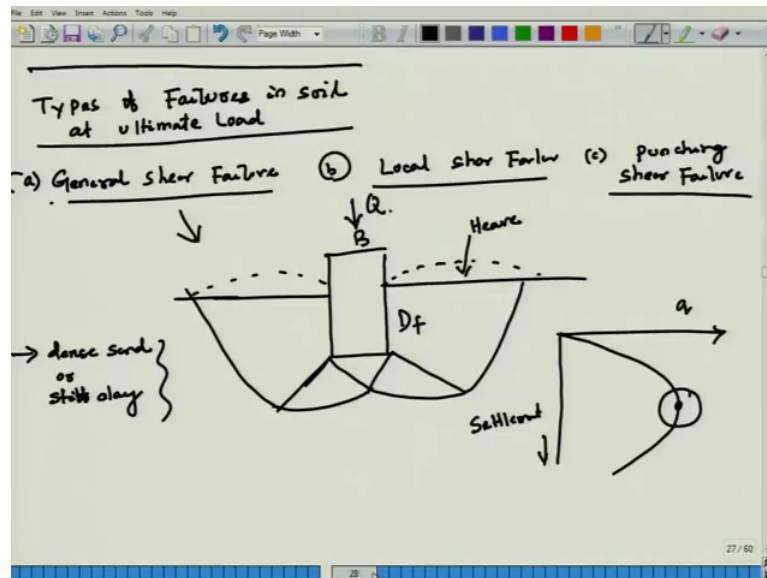 File Edit View Insert Actions Tools Help
Page Width
B I
Types of Failures in soil
at ultimate Load
(a) General Shear Failure
(b) Local Shear Failur
(c) Punching
Shear Failure
Q.
B
Heave
Df
q
→ dense sand
or
stiff clay
Settlement
27 / 60
28